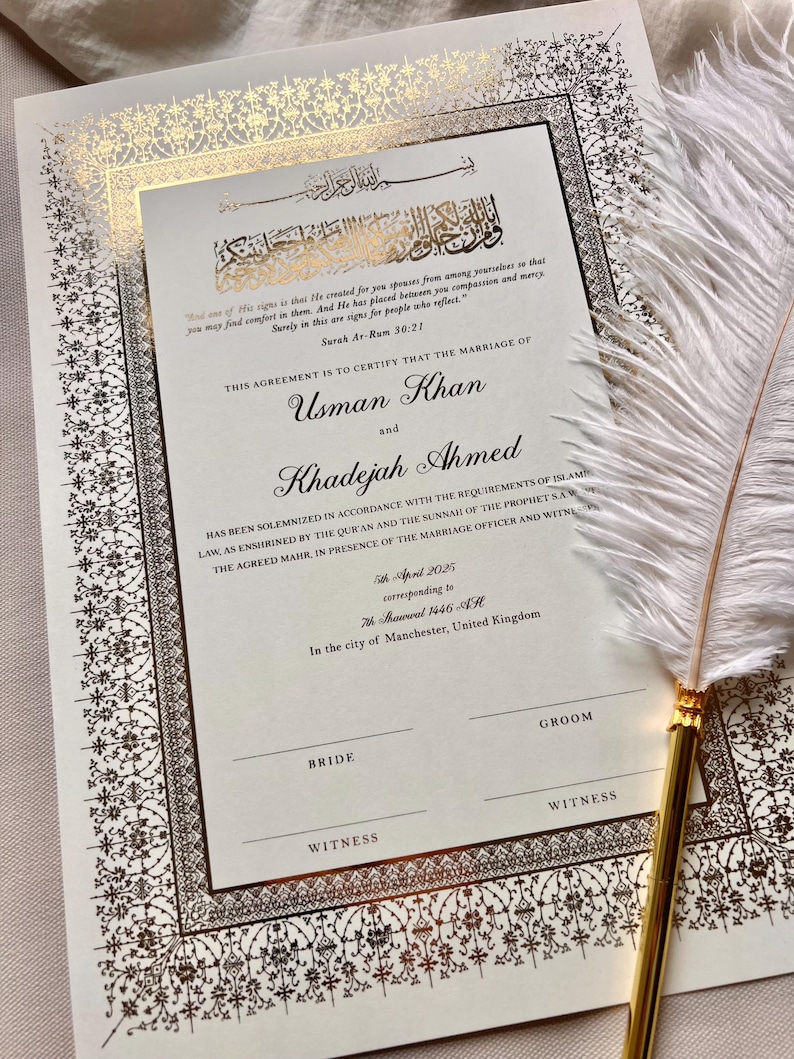 بسم الله الرحمن الرحيم
"And one of His signs is that He created for you spouses from among yourselves so that
you may find comfort in them. And He has placed between you compassion and mercy.
Surely in this are signs for people who reflect."
Surah Ar-Rum 30:21
THIS AGREEMENT IS TO CERTIFY THAT THE MARRIAGE OF
Usman Khan
and
Khadejah Ahmed
HAS BEEN SOLEMNIZED IN ACCORDANCE WITH THE REQUIREMENTS OF ISLAMIC
LAW, AS ENSHRINED BY THE QUR'AN AND THE SUNNAH OF THE PROPHET S.A.W
THE AGREED MAHR, IN PRESENCE OF THE MARRIAGE OFFICER AND WITNESSES
5th April 2025
corresponding to
7th Shawwal 1446 AH
In the city of Manchester, United Kingdom
BRIDE
GROOM
WITNESS
WITNESS